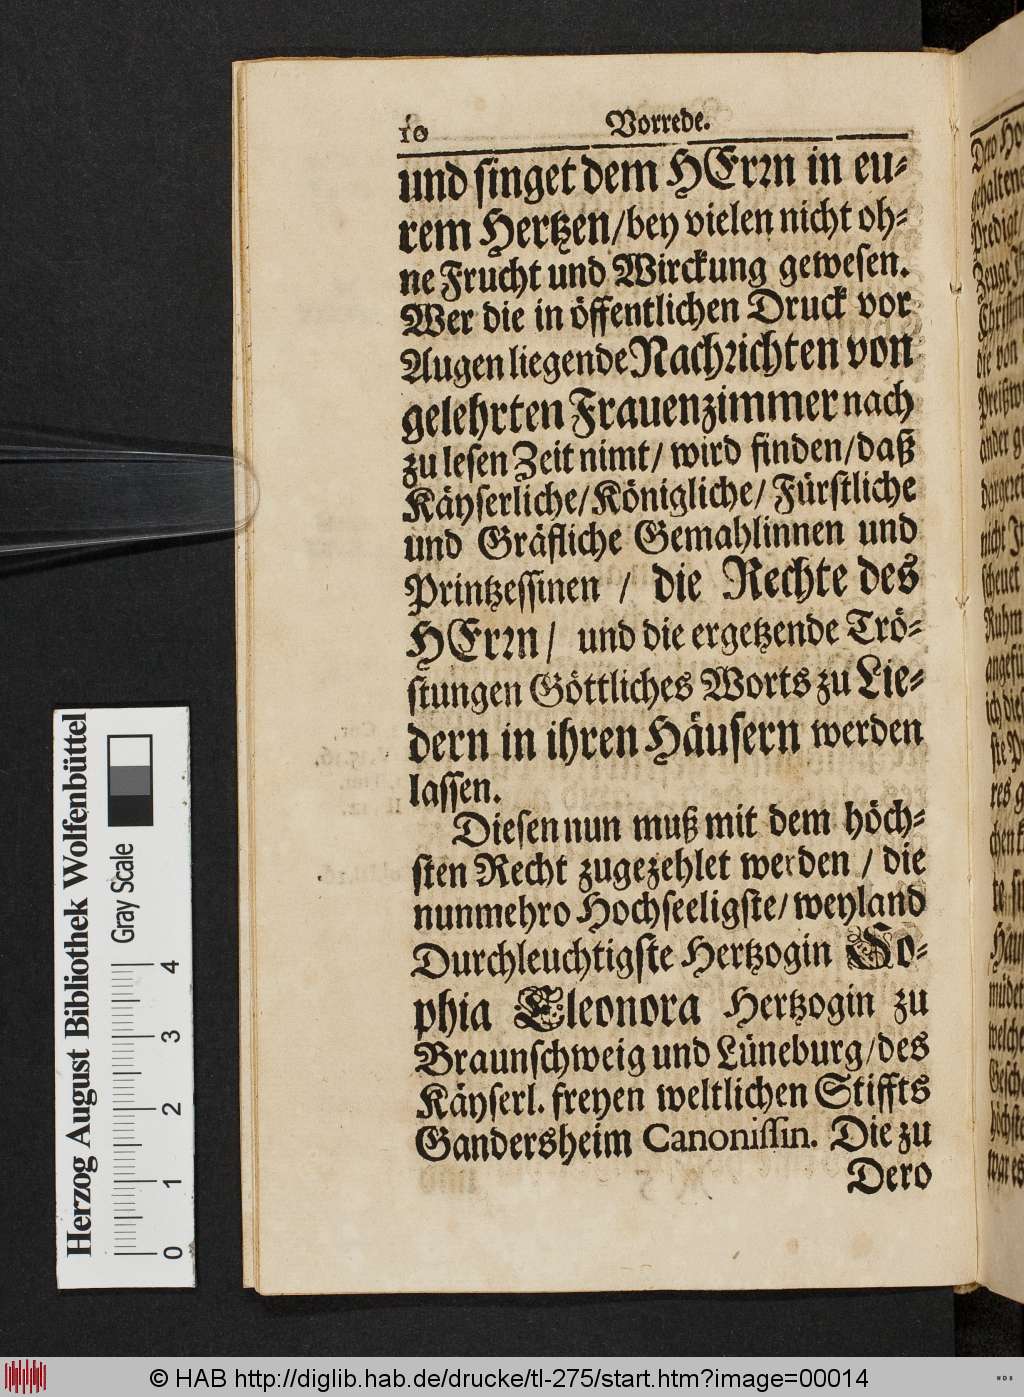 10 Vorrede.
und singet dem HErrn in eu-
rem Hertzen/bey vielen nicht oh-
ne Frucht und Wirckung gewesen.
Wer die in öffentlichen Druck vor
Augen liegende Nachrichten von
gelehrten Frauenzimmer nach
zu lesen Zeit nimt/ wird finden/daß
Käyserliche/Königliche/ Fürstliche
und Gräfliche Gemahlinnen und
Printzessinen / die Rechte des
HErrn/ und die ergetzende Trö-
stungen Göttliches Worts zu Lie-
dern in ihren Häusern werden
lassen.
Diesen nun muß mit dem höch-
sten Recht zugezehlet werden / die
nunmehro Hochseeligste/ weyland
Durchleuchtigste Hertzogin So-
phia Eleonora Hertzogin zu
Braunschweig und Lüneburg/des
Käyserl. freyen weltlichen Stiffts
Gandersheim Canonissin. Die zu
Dero
Herzog August Bibliothek Wolfenbüttel
Gray Scale
0 1 2 3 4
© HAB http://diglib.hab.de/drucke/tl-275/start.htm?image=00014